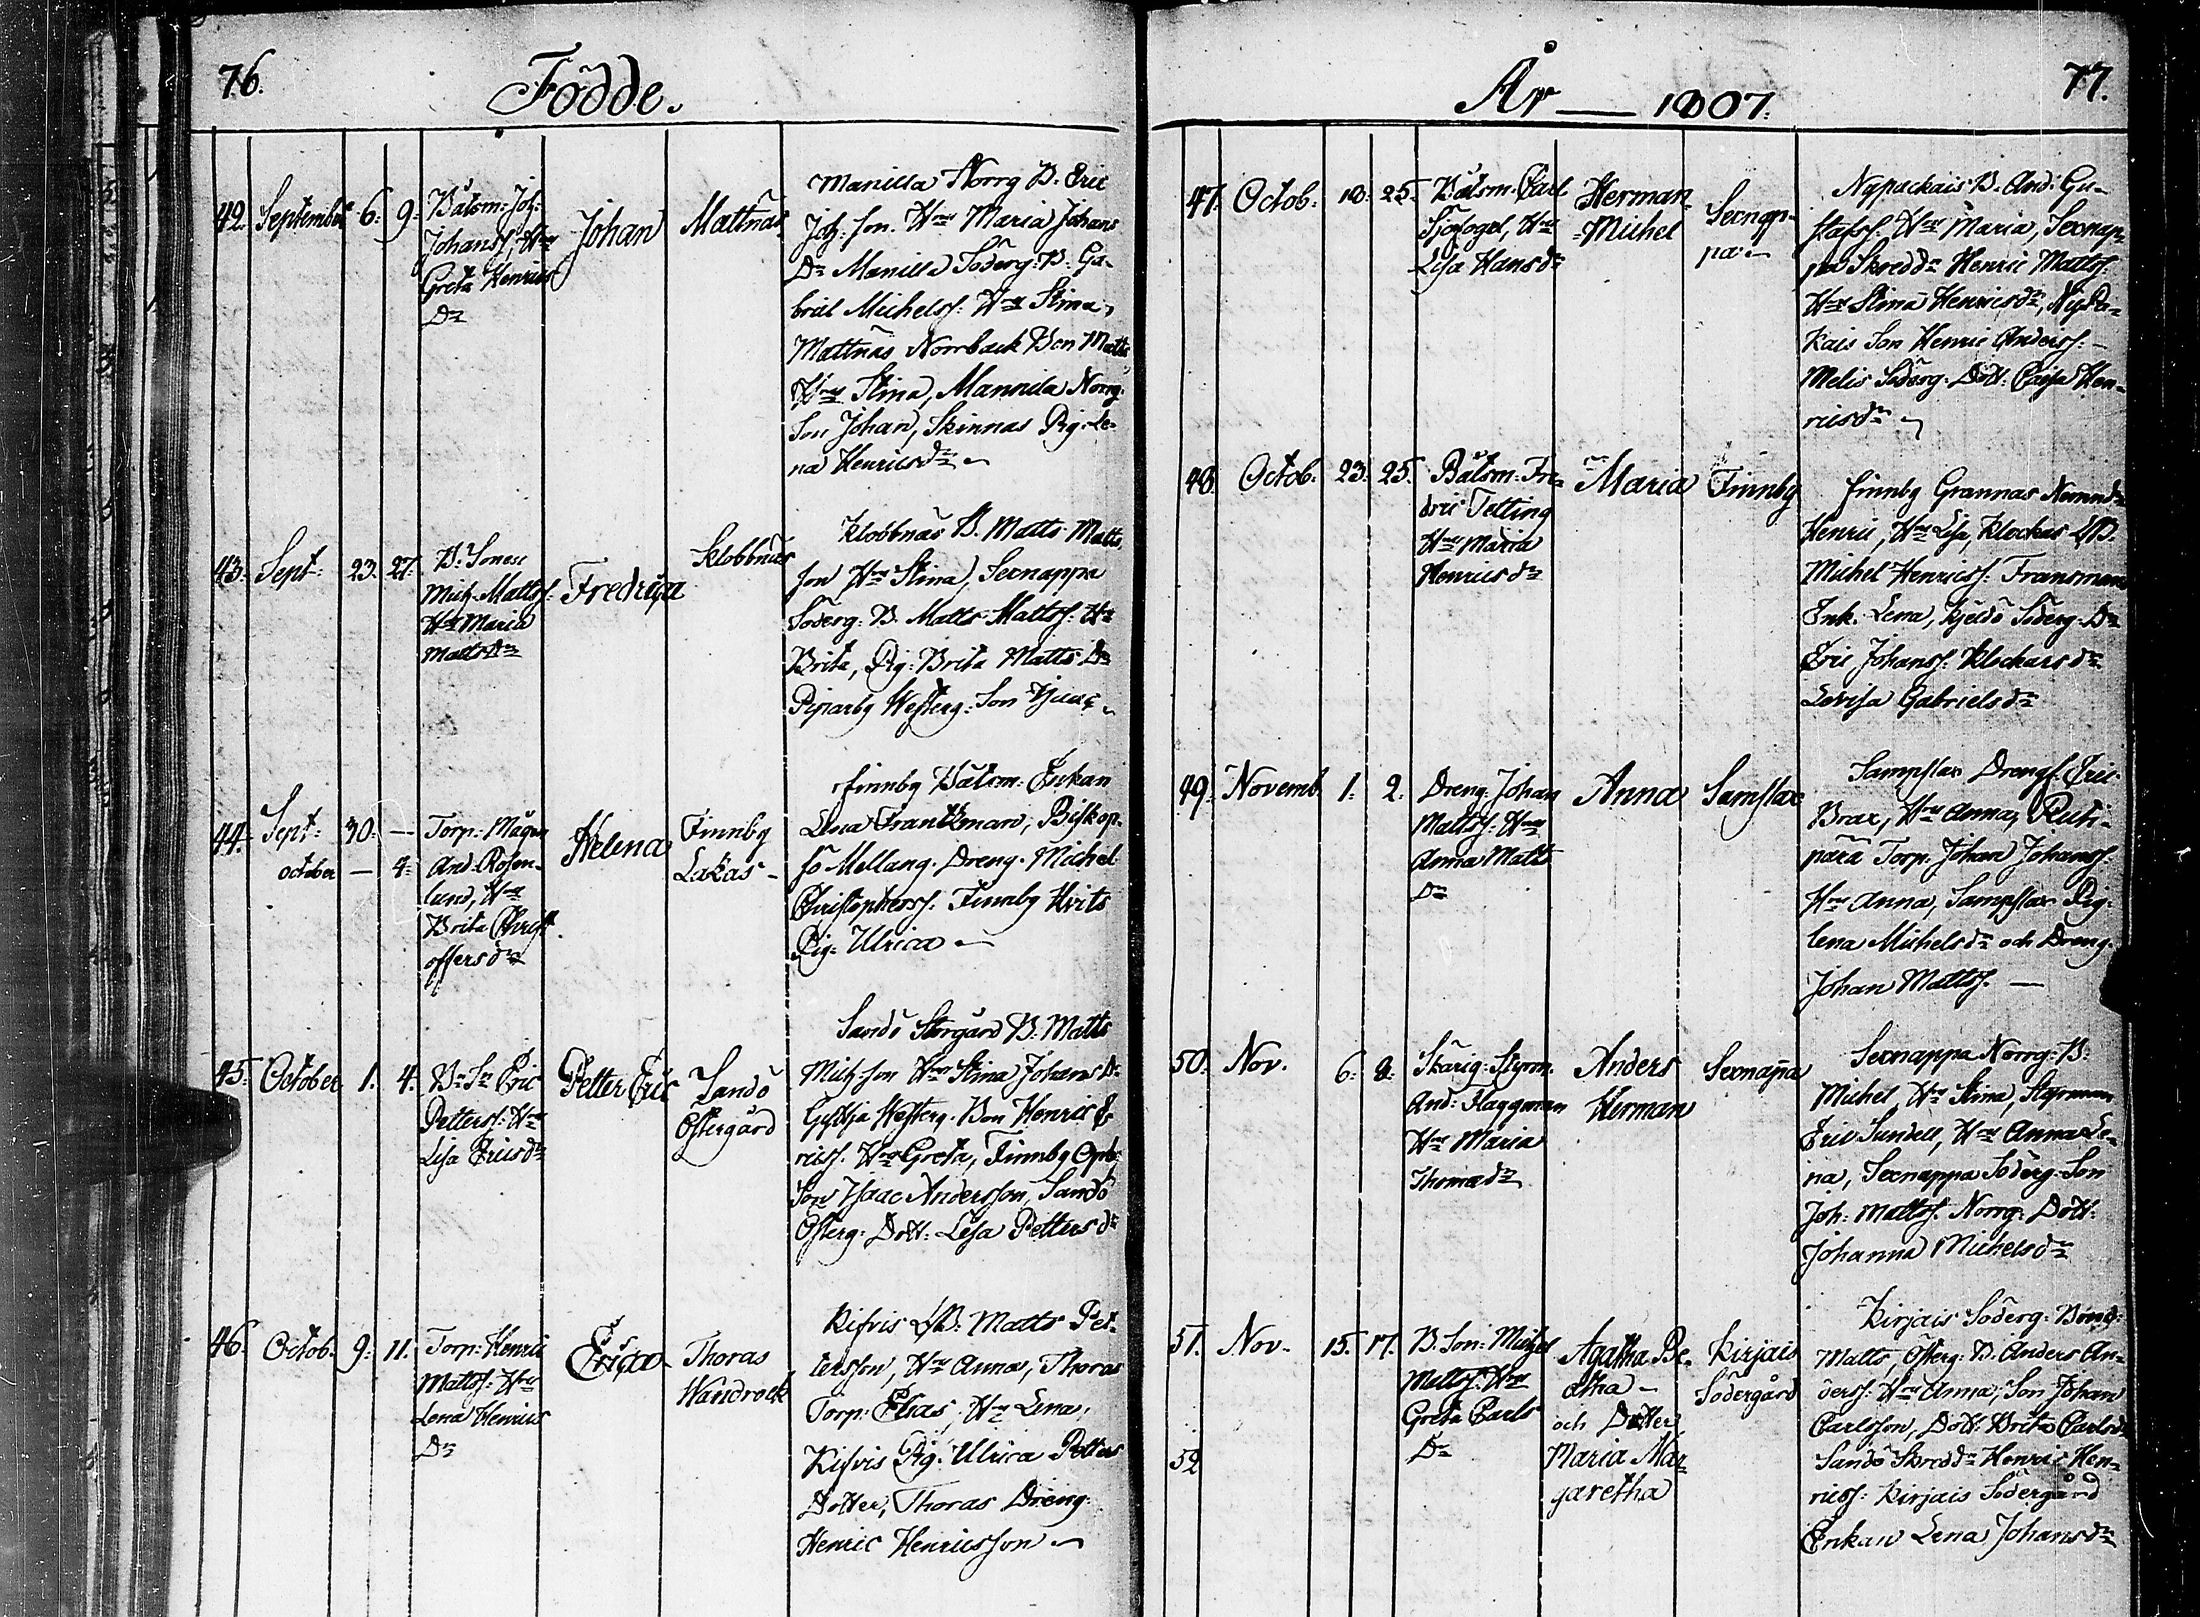 76.
Födde.
42. September 6. 9.
Båtsm: Joh:
Johanss: Hru
Greta Henrics
Dr
Johan
Mattnäs
Manilla Norrg B. Eric
Joh: son. Hru Maria Johans
Dr Manilla Söderg: B. Ga-
briel Michelss: Hru Stina,
Mattnäs Norrback Bon Matts
Hru Stina, Mannila Norrg:
Son Johan, Skinnas Pig: Le-
na Henricsdr
43. Sept: 23. 27.
B: Sonen
Mich: Mattss:
Hru Maria
Matts Dr
Fredrica
Klobbnäs
Klobbnäs B. Matts Matts
son Hru Stina, Sexnappa
Söderg: B. Matts Mattss: Hru
Brita, Pig: Brita Matts Dr
Piparby Westerg: Son Isaac
44. Sept: 30. —
october — 4.
Torp: Mågen
And: Rosen-
lund, Hru
Brita Christ
offersdr
Helena
Finnby
Lakas
Finnby Båtsm: Enkan
Lena Frantzman, Biskop-
sö Mellang. Dreng: Michel
Christopherss: Finnby Hvits
Pig: Ulrica
45. October 1. 4.
B. Sn Eric
Petterss: Hru
Lisa Ericsdr
Petter Eric
Sandö
Östergård
Sandö Storgård B: Matts
Mich: son Hru Stina Johans Dr
Gyttja Westerg. Bon Henric E-
ricss. Hru Greta, Finnby Opb:
Son Isaac Andersson, Sandö
Österg: Dott: Lisa Pettersdr
46. Octob. 9. 11.
Torp: Henric
Mattss: Hru
Lena Henrics
Dr
Erica
Thoras
Wandrock
Kifvis B: Matts Pet-
tersson, Hru Anna, Thoras
Torp: Elias, Hru Lena,
Kifvis Pig: Ulrica Petters
Dotter, Thoras Dreng:
Henric Henricsson
År — 1807.
77.
47. Octob: 18. 25.
Båtsm. Carl
Sjöfogel, Hru
Lisa Hansdr
Herman
Michel
Sexnap-
pa
Nypackais B. And: Gu-
stafss: Hru Maria, Sexnap-
pa Skreddr Henric Mattss:
Hru Stina Henricsdr, Nypa-
kais Son Henric Anderss:
Melis Söderg: Dott: Caisa Hen-
ricsdr
48. Octob. 23. 25.
Båtsm: Fre-
dric Telting
Hru Maria
Henricsdr
Maria
Finnby
Finnby Grannas Nemndn
Henric, Hru Lisa, Klockas B.
Michel Henricss: Fransmans
Enk. Lena, Kjeldö Söderg: Dr
Eric Johanss: Klockarsdr
Lovisa Gabrielsdr
49. Novemb. 1. 2.
Dreng: Johan
Mattss: Hru
Anna Matts
Dr
Anna
Samslax
Sampslax Drengf. Eric
Brax, Hru Anna, Ruti-
pära Torp: Johan Johanss:
Hru Anna, Sampslax Pig:
Lena Michelsdr och Dreng:
Johan Mattss. —
50. Nov. 6. 8.
Skärig: Styrm.
And: Flaggman
Hru Maria
Thomædr
Anders
Herman
Sexnappa
Sexnappa Norrg: B:
Michel Hru Stina, Styrman
Eric Sundell, Hru Anna Le-
na, Sexnappa Söderg: Son
Joh: Mattss. Norrg: Dott:
Johanna Michelsdr
51. Nov. 15. 17.
B. Son: Michel
Mattss: Hru
Greta Carls
Dr
Agatha Be-
atha —
och Dotter
52
Maria Mar-
garetha
Kirjais
Södergård
Kirjais Söderg: Bond:
Matts, Österg: B. Anders An-
derss: Hru Anna, Son Johan
Carlsson, Dott: Brita Carlsdr
Sandö Skreddr Henric Hen-
ricss: Kirjais Södergård
Enkan Lena Johansdr